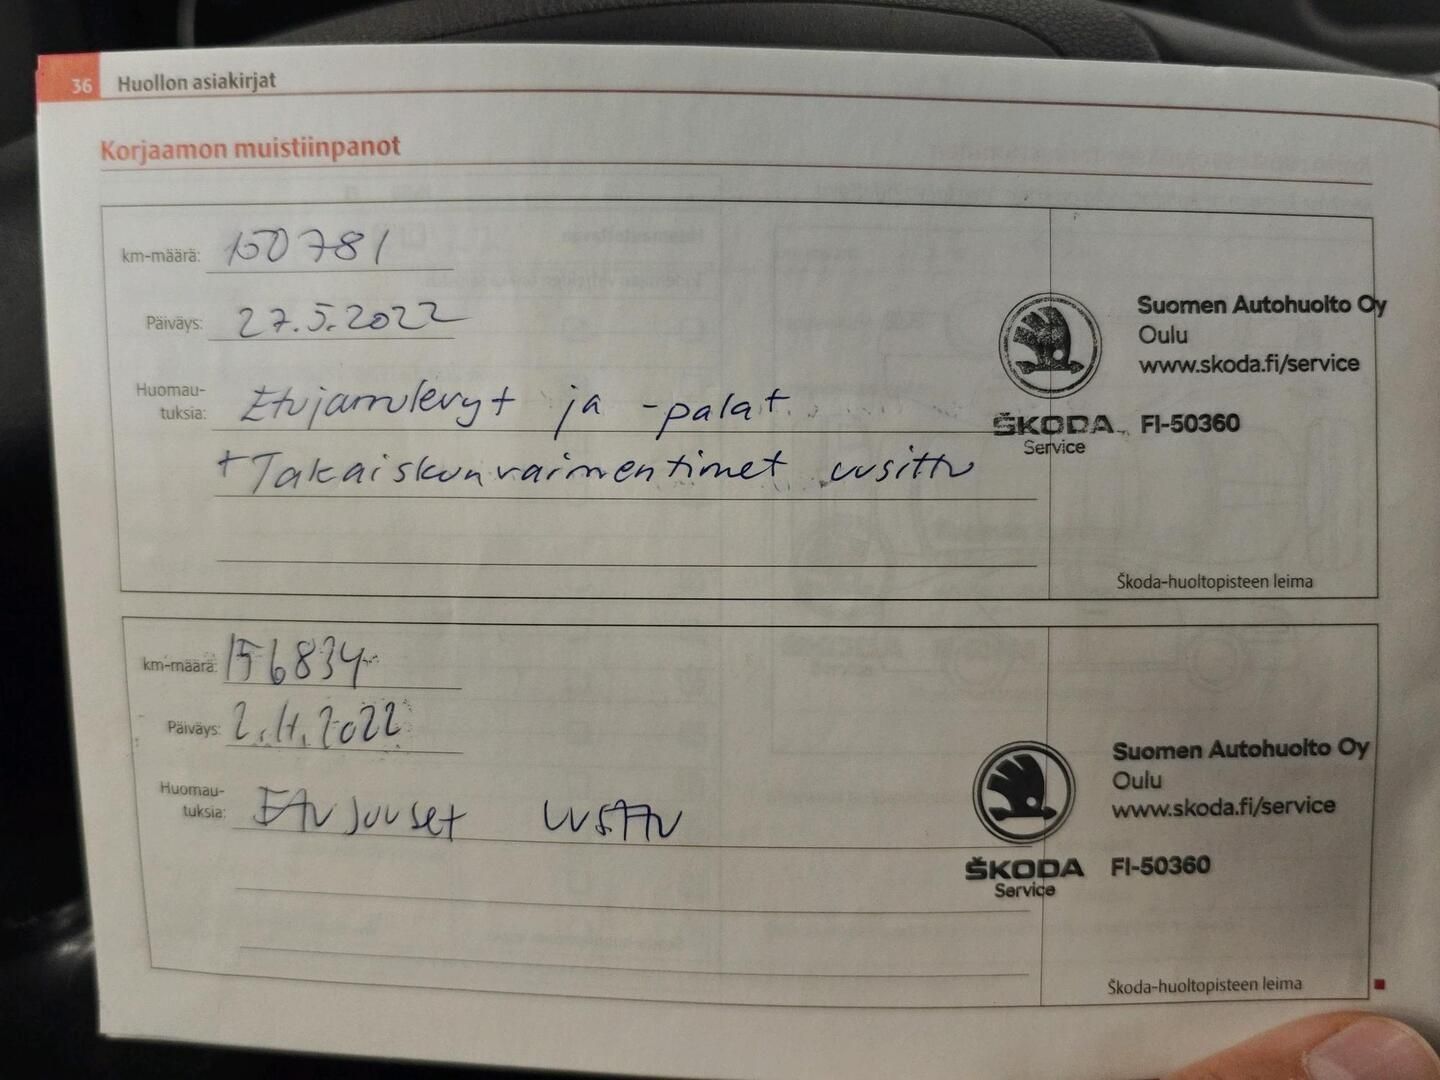 36 Huollon asiakirjat
Korjaamon muistiinpanot
km-määrä: 150781
Päiväys: 27.5.2022
Huomau-
tuksia: Etujarrulevyt ja -palat
+ Takaiskunvaimentimet uusittu
Suomen Autohuolto Oy
Oulu
www.skoda.fi/service
ŠKODA FI-50360
Service
Škoda-huoltopisteen leima
km-määrä: 156834
Päiväys: 2.11.2022
Huomau-
tuksia: Etu jouset uusittu
Suomen Autohuolto Oy
Oulu
www.skoda.fi/service
ŠKODA FI-50360
Service
Škoda-huoltopisteen leima